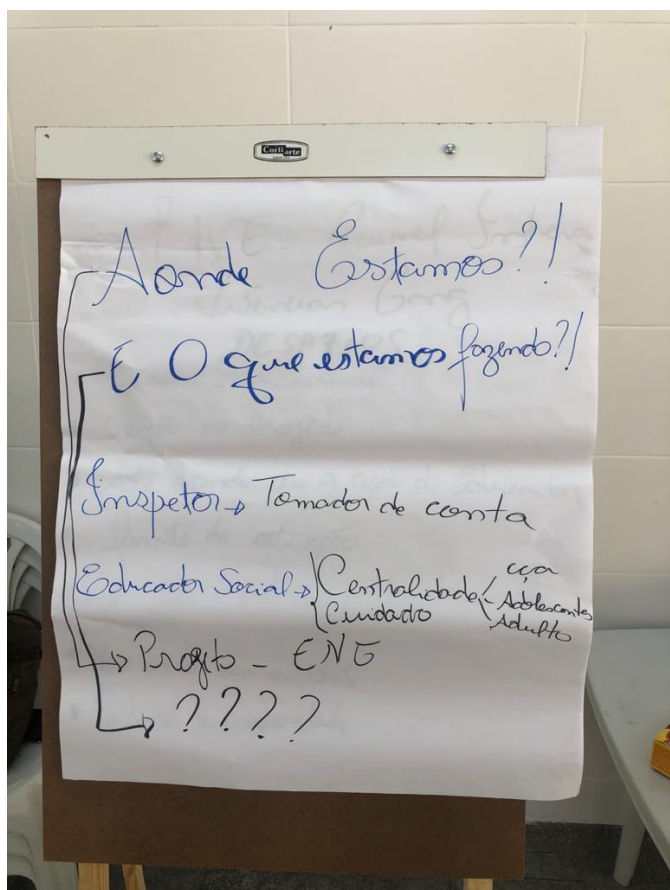 Corti arte
Aonde Estamos?!
E O que estamos fazendo?!
Inspetor → Tomador de conta
Educador Social → Centralidade cça
Cuidado - Adolescentes
Adulto
→ Projeto - ENE
→ ????